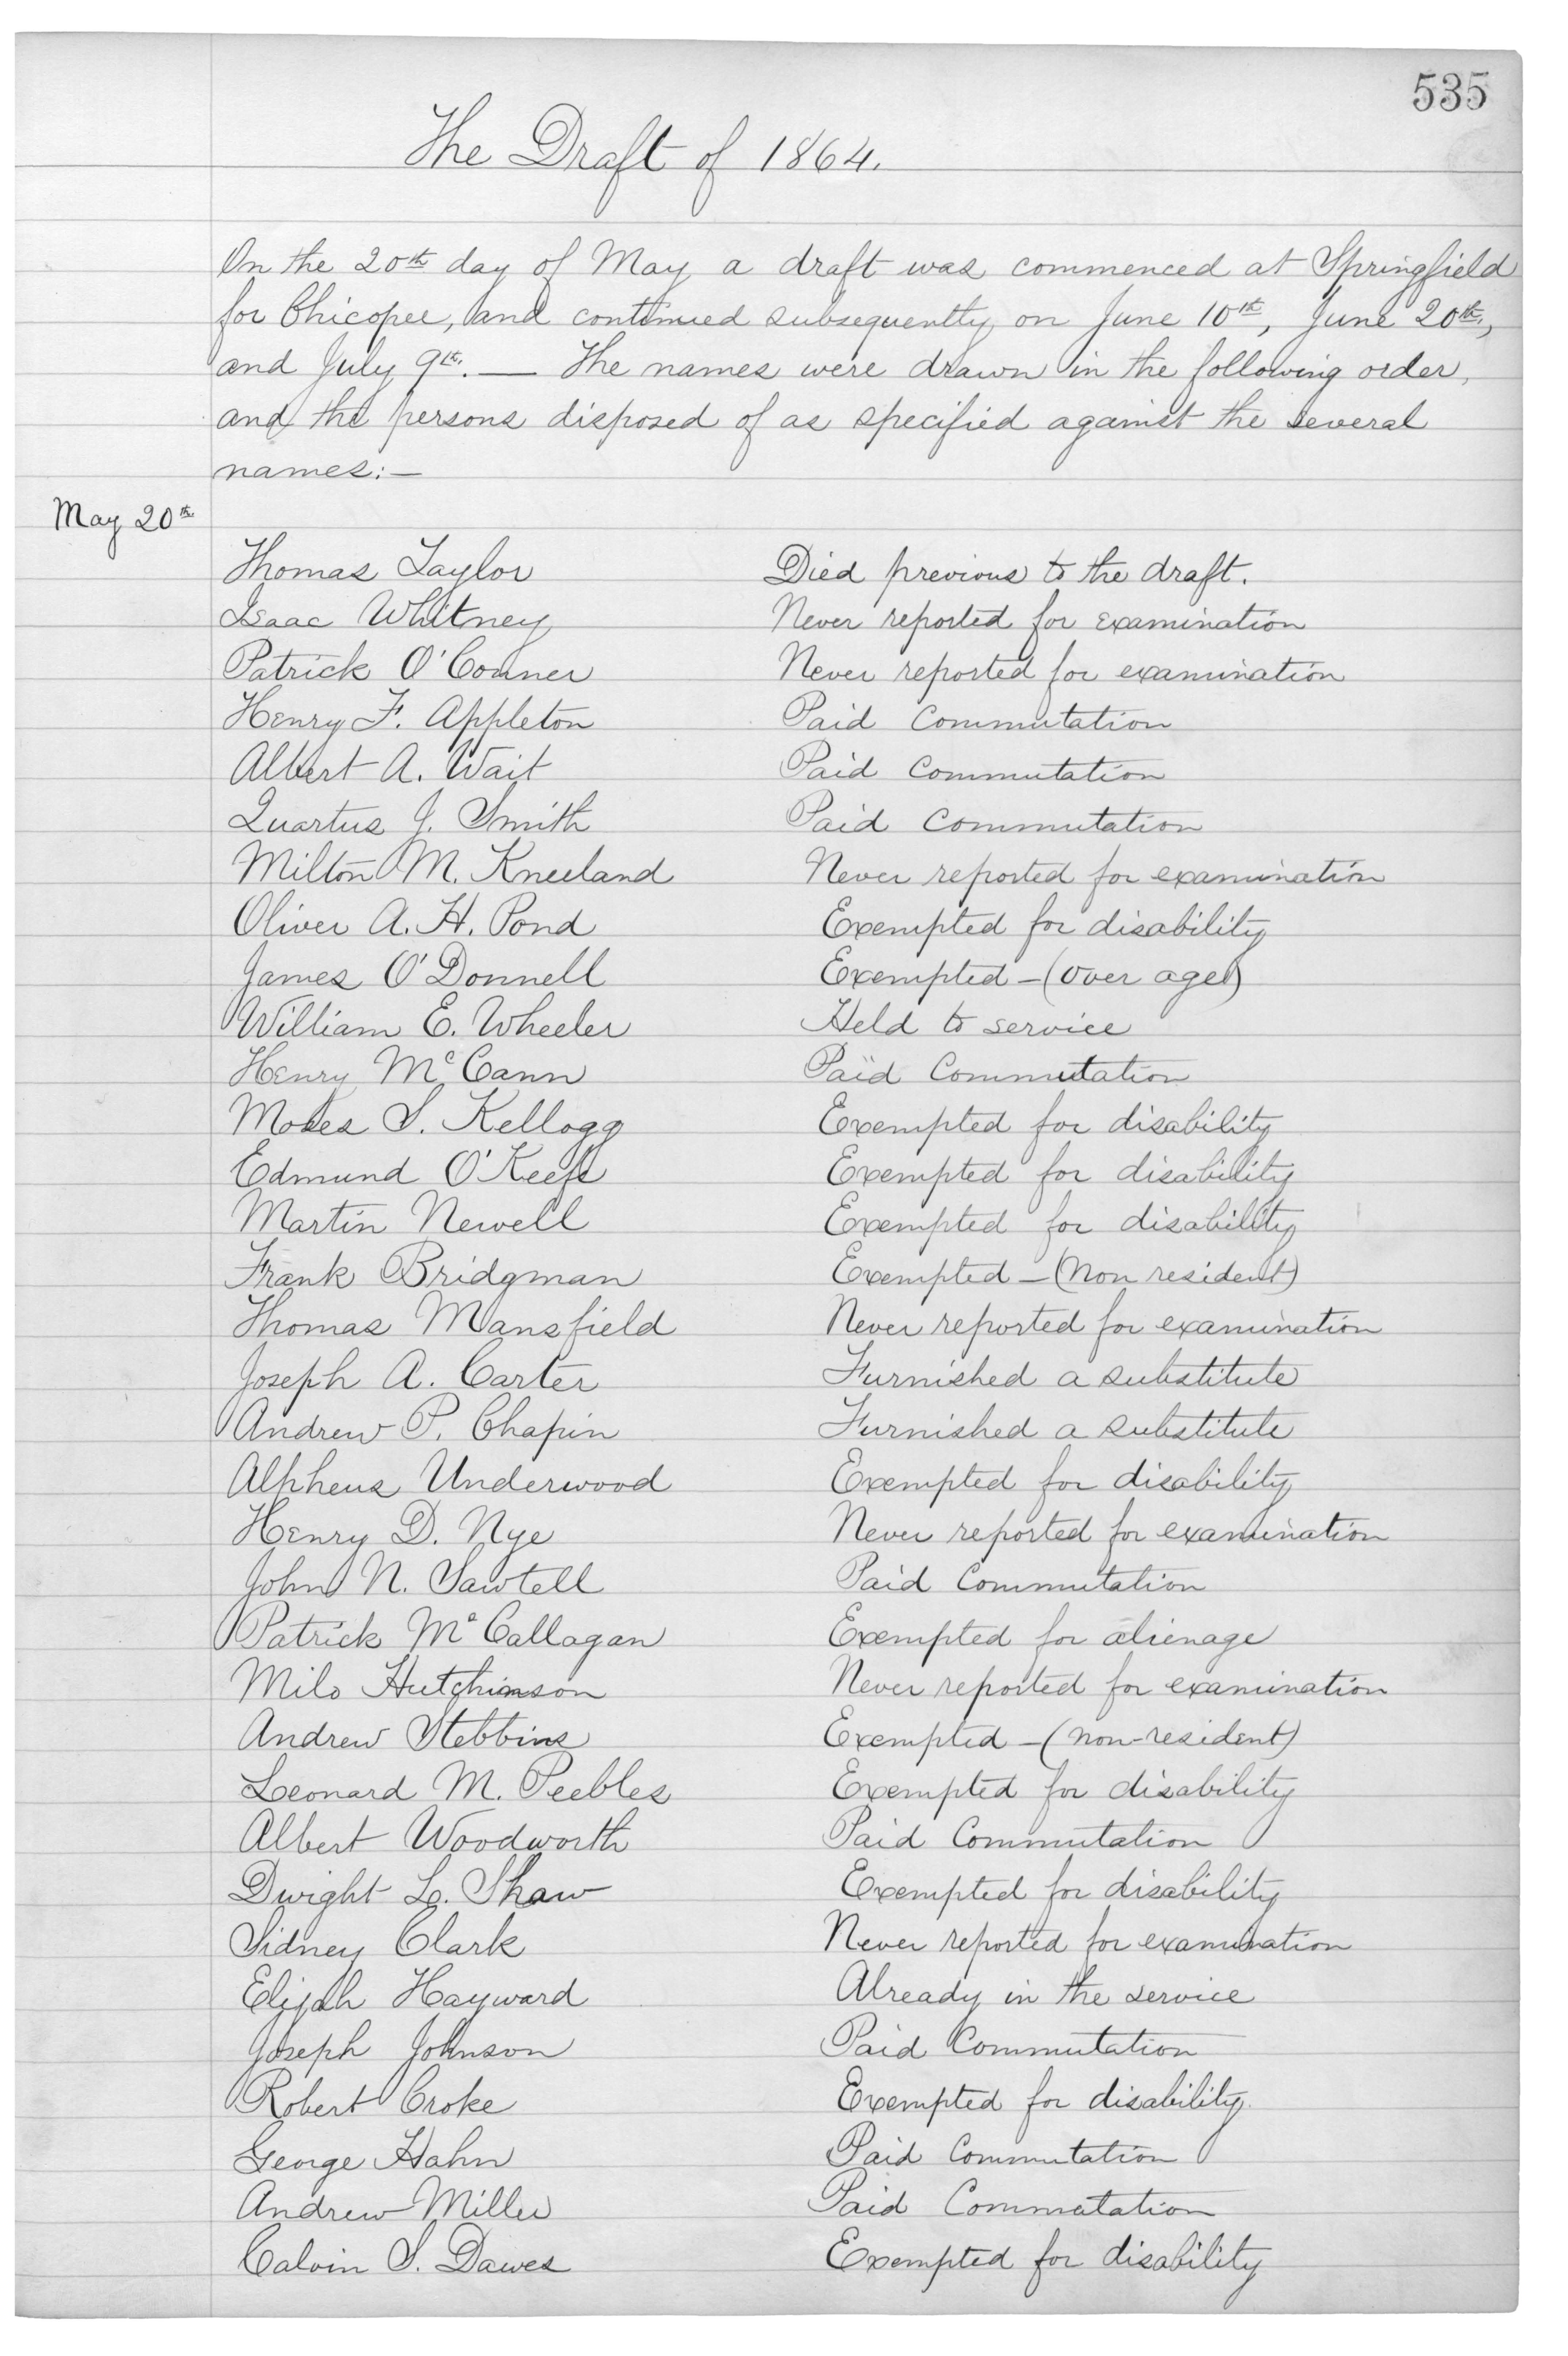 535
The Draft of 1864.
On the 20th day of May a draft was commenced at Springfield
for Chicopee, and continued subsequently on June 10th, June 20th,
and July 9th. — The names were drawn in the following order,
and the persons disposed of as specified against the several
names:—
May 20th
Thomas Taylor Died previous to the draft.
Isaac Whitney Never reported for examination
Patrick O'Conner Never reported for examination
Henry F. Appleton Paid Commutation
Albert A. Wait Paid Commutation
Quartus J. Smith Paid Commutation
Milton M. Kneeland Never reported for examination
Oliver A. H. Pond Exempted for disability
James O'Donnell Exempted – (over age)
William E. Wheeler Held to service
Henry McCann Paid Commutation
Moses S. Kellogg Exempted for disability
Edmund O'Keefe Exempted for disability
Martin Newell Exempted for disability
Frank Bridgman Exempted – (Non resident)
Thomas Mansfield Never reported for examination
Joseph A. Carter Furnished a substitute
Andrew P. Chapin Furnished a substitute
Alpheus Underwood Exempted for disability
Henry D. Nye Never reported for examination
John N. Sawtell Paid Commutation
Patrick McCallagan Exempted for alienage
Milo Hutchinson Never reported for examination
Andrew Stebbins Exempted – (non-resident)
Leonard M. Peebles Exempted for disability
Albert Woodworth Paid Commutation
Dwight L. Shaw Exempted for disability
Sidney Clark Never reported for examination
Elijah Hayward Already in the service
Joseph Johnson Paid Commutation
Robert Croke Exempted for disability.
George Hahn Paid Commutation
Andrew Miller Paid Commutation
Calvin S. Dawes Exempted for disability